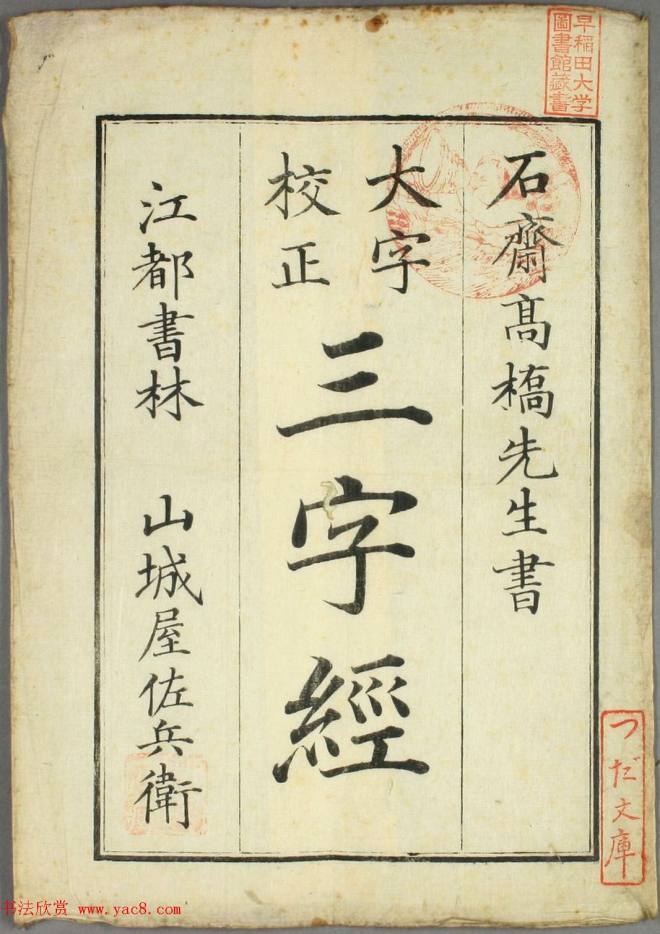 石齋髙橋先生書
大字
校正
三字經
江都書林　山城屋佐兵衛
早稲田大学
圖書館蔵書
つだ文庫
书法欣赏 www.yac8.com